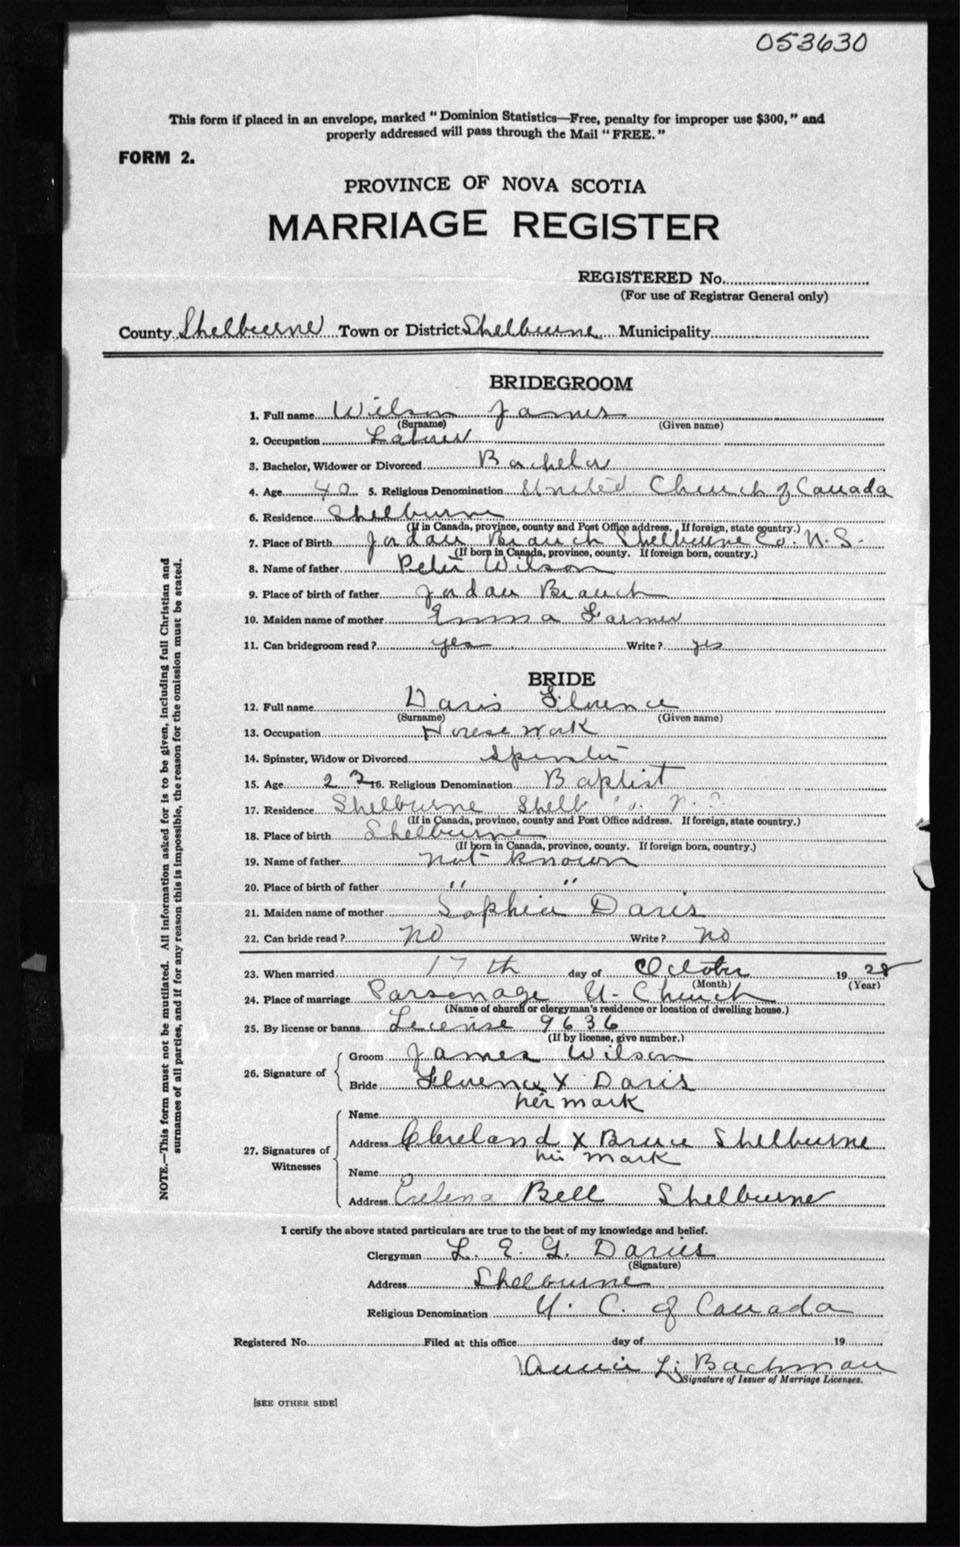 053630
This form if placed in an envelope, marked "Dominion Statistics—Free, penalty for improper use $300," and
properly addressed will pass through the Mail "FREE."
FORM 2.
PROVINCE OF NOVA SCOTIA
MARRIAGE REGISTER
REGISTERED No.
(For use of Registrar General only)
County Shelburne Town or District Shelburne Municipality
BRIDEGROOM
1. Full name Wilson James
(Surname) (Given name)
2. Occupation Laborer
3. Bachelor, Widower or Divorced Bachelor
4. Age 40 5. Religious Denomination United Church of Canada
6. Residence Shelburne
(If in Canada, province, county and Post Office address. If foreign, state country.)
7. Place of Birth Jordan Branch Shelburne Co. N.S.
(If born in Canada, province, county. If foreign born, country.)
8. Name of father Peter Wilson
9. Place of birth of father Jordan Branch
10. Maiden name of mother Emma Farmer
11. Can bridegroom read? yes Write? yes
BRIDE
12. Full name Davis Florence
(Surname) (Given name)
13. Occupation House work
14. Spinster, Widow or Divorced Spinster
15. Age 22 16. Religious Denomination Baptist
17. Residence Shelburne Shelb Co. N.S.
(If in Canada, province, county and Post Office address. If foreign, state country.)
18. Place of birth Shelburne
(If born in Canada, province, county. If foreign born, country.)
19. Name of father not known
20. Place of birth of father " "
21. Maiden name of mother Sophia Davis
22. Can bride read? no Write? no
23. When married 17th day of October 19 28
(Month) (Year)
24. Place of marriage Parsonage U. Church
(Name of church or clergyman's residence or location of dwelling house.)
25. By license or banns License 9636
(If by license, give number.)
26. Signature of Groom James Wilson
Bride Florence X Davis
her mark
27. Signatures of Witnesses
Name
Address Cleveland X Bruce Shelburne
his mark
Name
Address Evelena Bell Shelburne
I certify the above stated particulars are true to the best of my knowledge and belief.
Clergyman L. E. G. Davies
(Signature)
Address Shelburne
Religious Denomination U. C. of Canada
Registered No. Filed at this office day of 19
Annie L. Bachman
Signature of Issuer of Marriage Licenses.
[SEE OTHER SIDE]
NOTE.—This form must not be mutilated. All information asked for is to be given, including full Christian and
surnames of all parties, and if for any reason this is impossible, the reason for the omission must be stated.